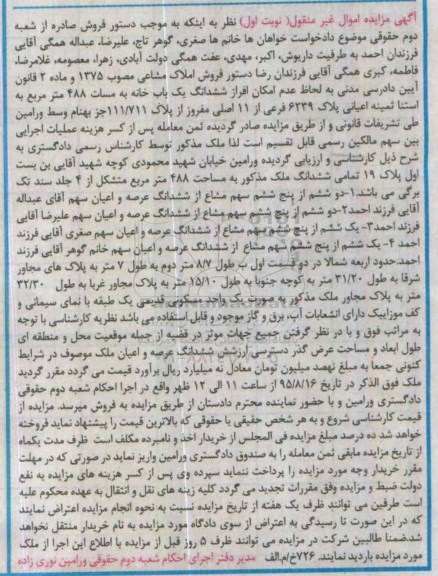 آگهی مزایده اموال غیر منقول( نوبت اول) نظر به اینکه به موجب دستور فروش صادره از شعبه
دوم حقوقی موضوع دادخواست خواهان ها خانم ها صغری، گوهر تاج، علیرضا، عبداله همگی آقایی
فرزندان احمد به طرفیت داریوش، اکبر، مهدی، عفت همگی دولت آبادی، زهرا، معصومه، غلامرضا،
فاطمه، کبری همگی آقایی فرزندان رضا دستور فروش املاک مشاعی مصوب ۱۳۷۵ و ماده ۲ قانون
آیین دادرسی مدنی به لحاظ عدم امکان افراز ششدانگ یک باب خانه به مساحت ۴۸۸ متر مربع به
استثنا ثمینه اعیانی پلاک ۶۲۳۹ فرعی از ۱۱ اصلی مفروز از پلاک ۱۱۱/۷۱۱جز بهنام وسط ورامین
طی تشریفات قانونی و از طریق مزایده صادر گردیده ثمن معامله پس از کسر هزینه عملیات اجرایی
بین سهم مالکین رسمی قابل تقسیم است لذا ملک مذکور توسط کارشناس رسمی دادگستری به
شرح ذیل کارشناسی و ارزیابی گردیده ورامین خیابان شهید محمودی کوچه شهید آقایی بن بست
اول پلاک ۱۹ تمامی ششدانگ ملک مذکور به مساحت ۴۸۸ متر مربع متشکل از ۴ جلد سند تک
برگی می باشد.۱-دو ششم از پنج ششم سهم مشاع از ششدانگ عرصه و اعیان سهم آقای عبداله
آقایی فرزند احمد۲-دو ششم از پنج ششم سهم مشاع از ششدانگ عرصه و اعیان سهم علیرضا آقایی
فرزند احمد۳- یک ششم از پنج ششم سهم مشاع از ششدانگ عرصه و اعیان سهم صغری آقایی فرزند
احمد ۴- یک ششم از پنج ششم سهم مشاع از ششدانگ عرصه و اعیان سهم خانم گوهر آقایی فرزند
احمد.حدود اربعه شمالا در دو قسمت اول ب طول ۸/۷ متر دوم به طول ۷ متر به پلاک های مجاور
شرقا به طول ۳۱/۲۰ متر به کوچه جنوبا به طول ۱۵/۱۰ متر به پلاک مجاور غربا به طول ۳۲/۳۰
متر به پلاک مجاور ملک مذکور به صورت یک واحد مسکونی قدیمی یک طبقه با نمای سیمانی و
کف موزاییک دارای انشعابات آب، برق و گاز موجود و قابل استفاده می باشد نظریه کارشناسی با توجه
به مراتب فوق و با در نظر گرفتن جمیع جهات موثر در قضیه از جمله موقعیت محل و منطقه ای
طول ابعاد و مساحت عرض گذر دسترسی ارزشش ششدانگ عرصه و اعیان ملک موصوف در شرایط
کنونی جمعا به مبلغ نهصد میلیون تومان معادل نه میلیارد ریال برآورد قیمت می گردد مقرر گردید
ملک فوق الذکر در تاریخ ۹۵/۸/۱۶ از ساعت ۱۱ الی ۱۲ ظهر واقع در اجرا احکام شعبه دوم حقوقی
دادگستری ورامین و با حضور نماینده محترم دادستان از طریق مزایده به فروش میرسد. مزایده از
قیمت کارشناسی شروع و به هر شخص حقیقی یا حقوقی که بالاترین قیمت را پیشنهاد نماید فروخته
خواهد شد ده درصد مبلغ مزایده فی المجلس از خریدار اخذ و نامبرده مکلف است ظرف مدت یکماه
از تاریخ مزایده مابقی ثمن معامله را به صندوق دادگستری ورامین واریز نماید در صورتی که در مهلت
مقرر خریدار وجه مورد مزایده را پرداخت ننماید سپرده وی پس از کسر هزینه های مزایده به نفع
دولت ضبط و مزایده وفق مقررات تجدید می گردد کلیه زینه های نقل و انتقال به عهده محکوم علیه
است طرفین می توانند ظرف یک هفته از تاریخ مزایده نسبت به نحوه انجام مزایده اعتراض نمایند
که در این صورت تا رسیدگی به اعتراض از سوی دادگاه مورد مزایده به نام خریدار منتقل نخواهد
شد.ضمنا طالبین شرکت در مزایده می توانند ظرف ۵ روز قبل از مزایده با اطلاع این اجرا از ملک
مورد مزایده بازدید نمایند. ۷۲۶خ/م/الف مدیر دفتر اجرای احکام شعبه دوم حقوقی ورامین نوری زاده